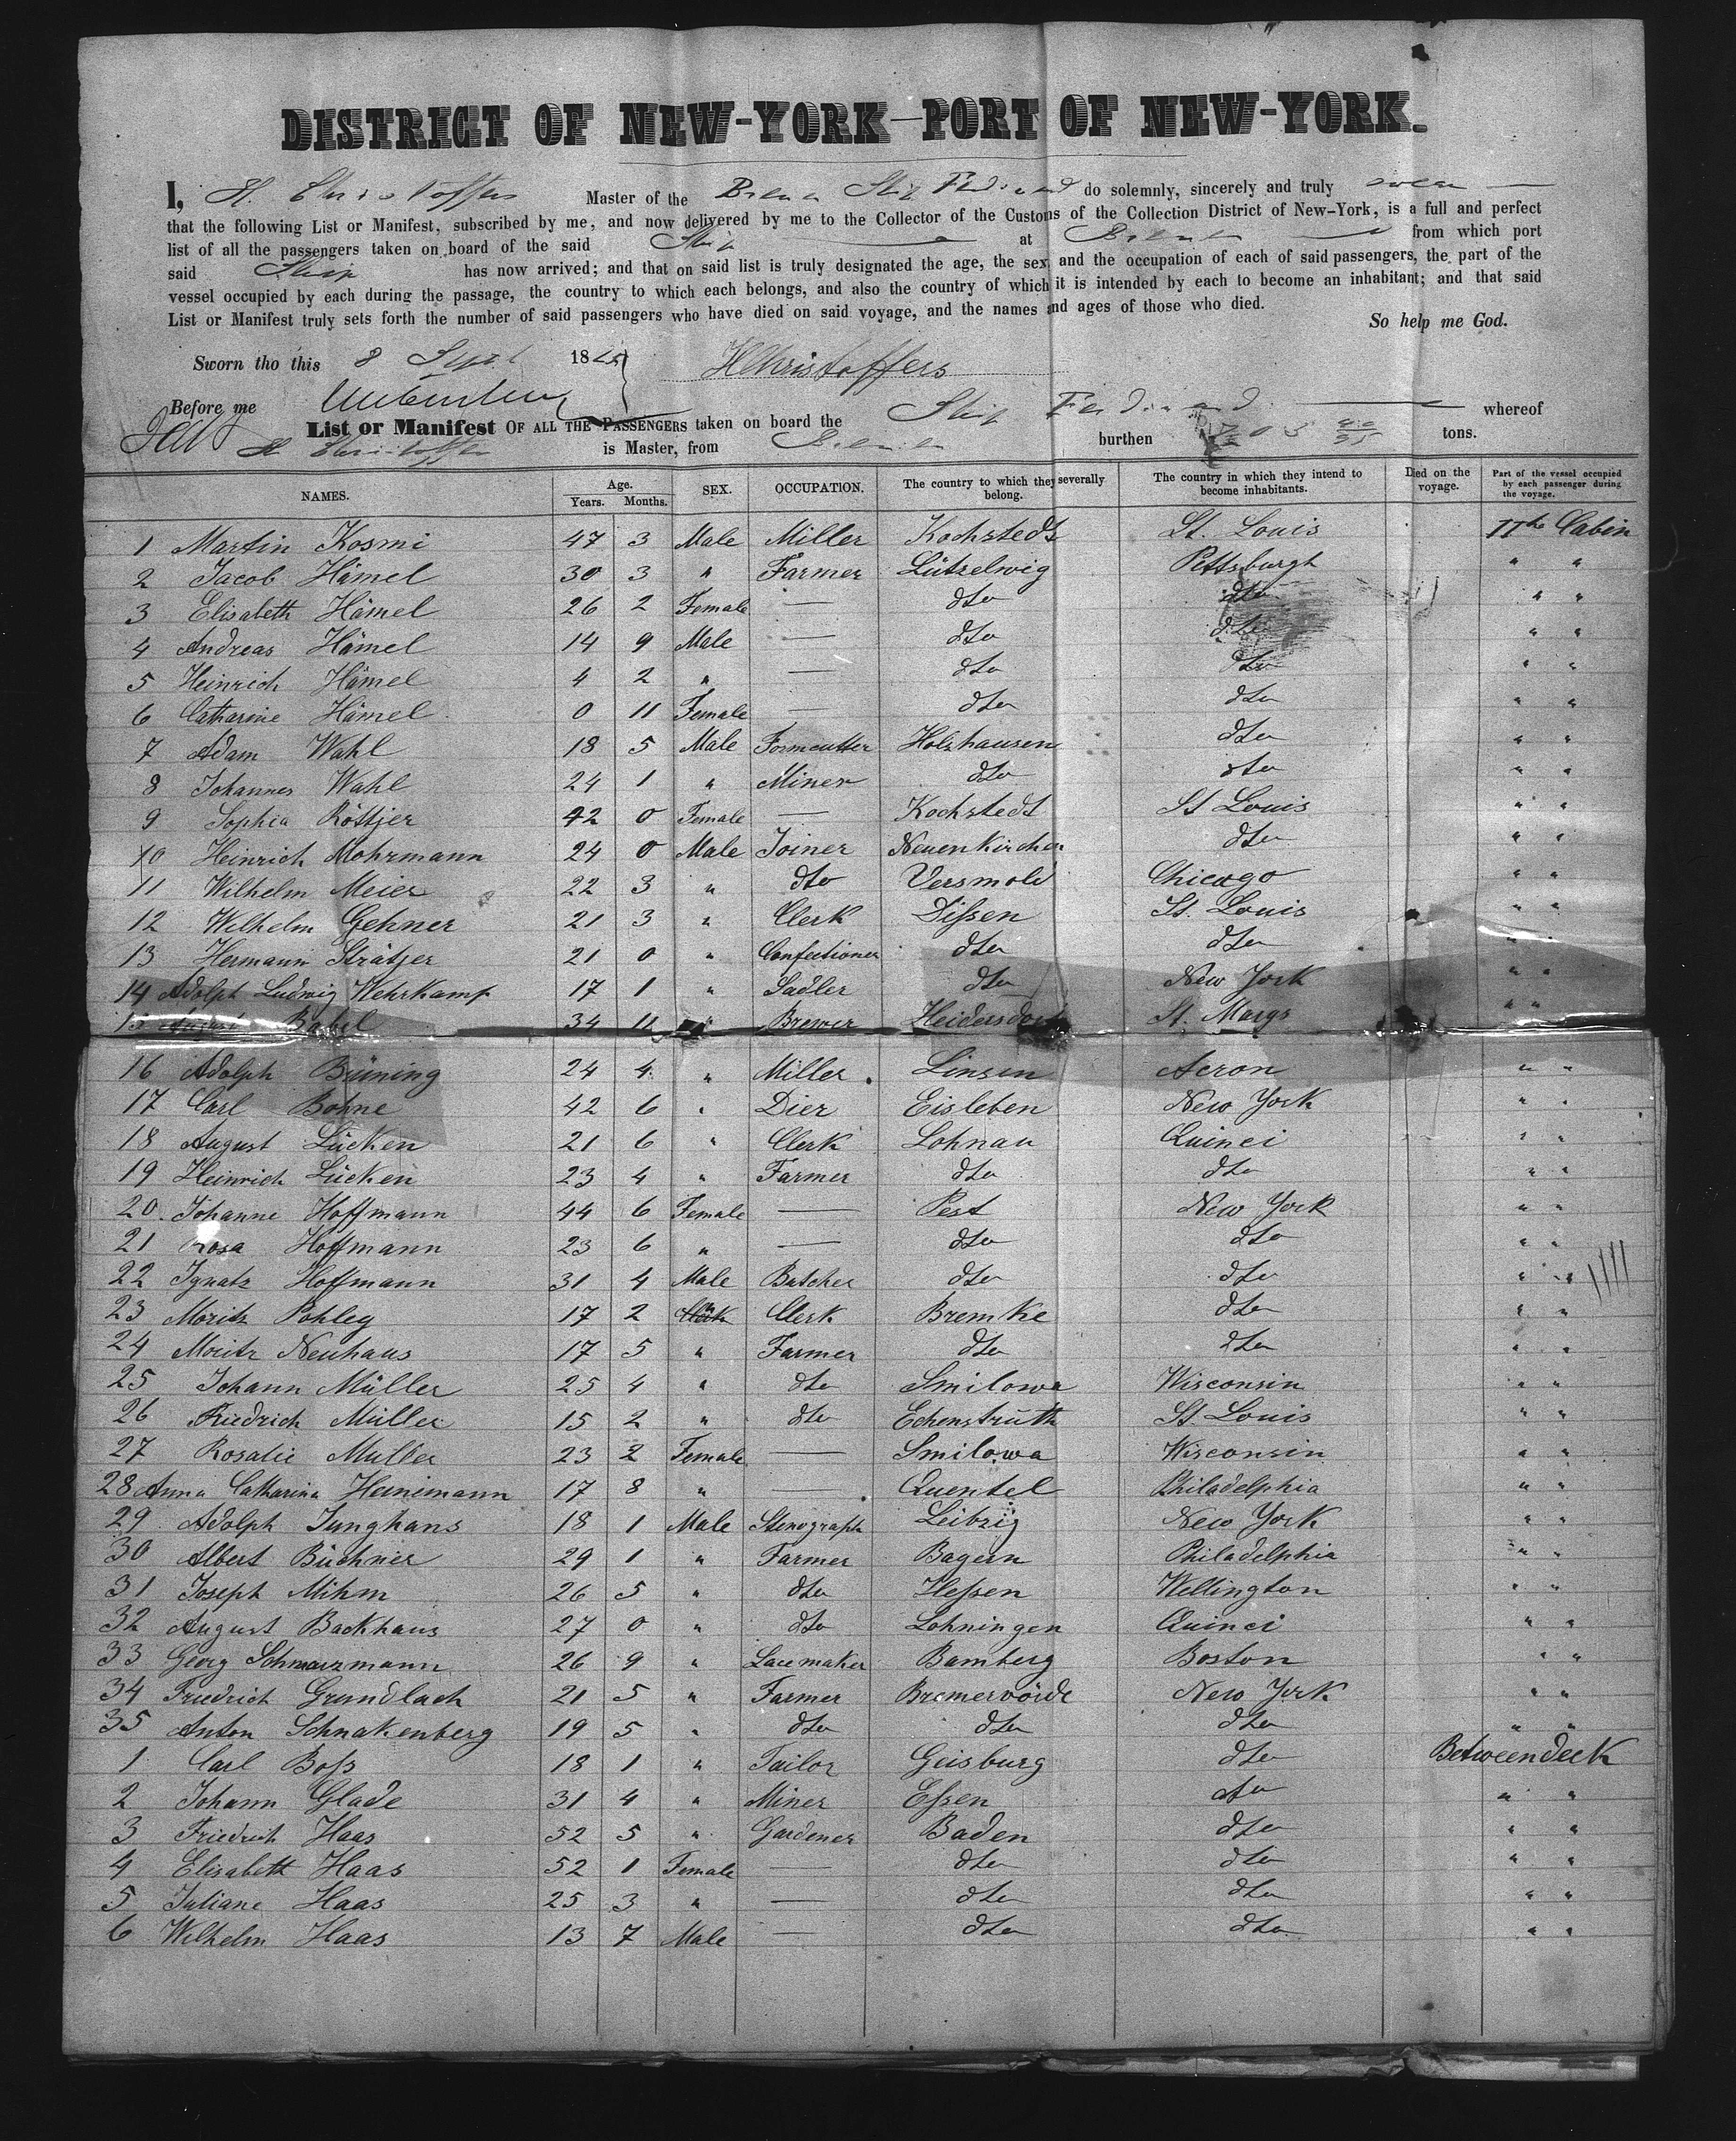 DISTRICT OF NEW-YORK—PORT OF NEW-YORK.
I, H. Christoffers Master of the Bremen Ship Ferdinand do solemnly, sincerely and truly swear
that the following List or Manifest, subscribed by me, and now delivered by me to the Collector of the Customs of the Collection District of New-York, is a full and perfect
list of all the passengers taken on board of the said Ship at Bremen from which port
said Ship has now arrived; and that on said list is truly designated the age, the sex and the occupation of each of said passengers, the part of the
vessel occupied by each during the passage, the country to which each belongs, and also the country of which it is intended by each to become an inhabitant; and that said
List or Manifest truly sets forth the number of said passengers who have died on said voyage, and the names and ages of those who died.
So help me God.
Sworn tho this 8 Sept 1865 HChristoffers
Before me
List or Manifest OF ALL THE PASSENGERS taken on board the Ship Ferdinand whereof
H. Christoffers is Master, from Bremen burthen tons.
NAMES. Age. Years. Months. SEX. OCCUPATION. The country to which they severally belong. The country in which they intend to become inhabitants. Died on the voyage. Part of the vessel occupied by each passenger during the voyage.
1 Martin Kosmi 47 3 Male Miller Kochstedt St. Louis IIte Cabin
2 Jacob Hämel 30 3 " Farmer Lützelwig Pettsburgh " "
3 Elisabeth Hämel 26 2 Female — dto dto " "
4 Andreas Hämel 14 9 Male — dto dto " "
5 Heinrich Hämel 4 2 " — dto dto " "
6 Catharine Hämel 0 11 Female — dto dto " "
7 Adam Wahl 18 5 Male Formcutter Holzhausen dto " "
8 Johannes Wahl 24 1 " Miner dto dto " "
9 Sophia Röttjer 42 0 Female — Kochstedt St Louis " "
10 Heinrich Mohrmann 24 0 Male Joiner Neuenkirchen dto " "
11 Wilhelm Meier 22 3 " dto Versmold Chicago " "
12 Wilhelm Gehner 21 3 " Clerk Dißen St. Louis " "
13 Hermann Strätjer 21 0 " Confectioner dto dto " "
14 Adolph Ludwig Wehrkamp 17 1 " Sadler dto New York " "
15 August Babel 34 11 " Brewer Heidersdorf St. Margs " "
16 Adolph Brüning 24 4 " Miller Linsen Acron " "
17 Carl Bohne 42 6 " Dier Eisleben New York " "
18 August Lücken 21 6 " Clerk Lohnau Quinci " "
19 Heinrich Lücken 23 4 " Farmer dto dto " "
20 Johanne Hoffmann 44 6 Female — Pest New York " "
21 Rosa Hoffmann 23 6 " — dto dto " "
22 Ignatz Hoffmann 31 4 Male Butcher dto dto " "
23 Moritz Pohley 17 2 " Clerk Bremke dto " "
24 Moritz Neuhaus 17 5 " Farmer dto dto " "
25 Johann Müller 25 4 " dto Smilowa Wisconsin " "
26 Friedrich Müller 15 2 " dto Echenstruth St. Louis " "
27 Rosalie Muller 23 2 Female — Smilowa Wisconsin " "
28 Anna Catharina Heinemann 17 8 " — Quentel Philadelphia " "
29 Adolph Junghans 18 1 Male Stenograph Leibzig New York " "
30 Albert Büchner 29 1 " Farmer Bayern Philadelphia " "
31 Joseph Mihm 26 5 " dto Heßen Wellington " "
32 August Backhaus 27 0 " dto Lohningen Quinci " "
33 Georg Schwarzmann 26 9 " Lacemaker Bamberg Boston " "
34 Friedrich Grundlach 21 5 " Farmer Bremervörde New York " "
35 Anton Schnakenberg 19 5 " dto dto dto " "
1 Carl Boß 18 1 " Tailor Geisburg dto Betweendeck
2 Johann Glade 31 4 " Miner Eßen dto " "
3 Friedrich Haas 52 5 " Gardener Baden dto " "
4 Elisabeth Haas 52 1 Female — dto dto " "
5 Juliane Haas 25 3 " — dto dto " "
6 Wilhelm Haas 13 7 Male — dto dto " "